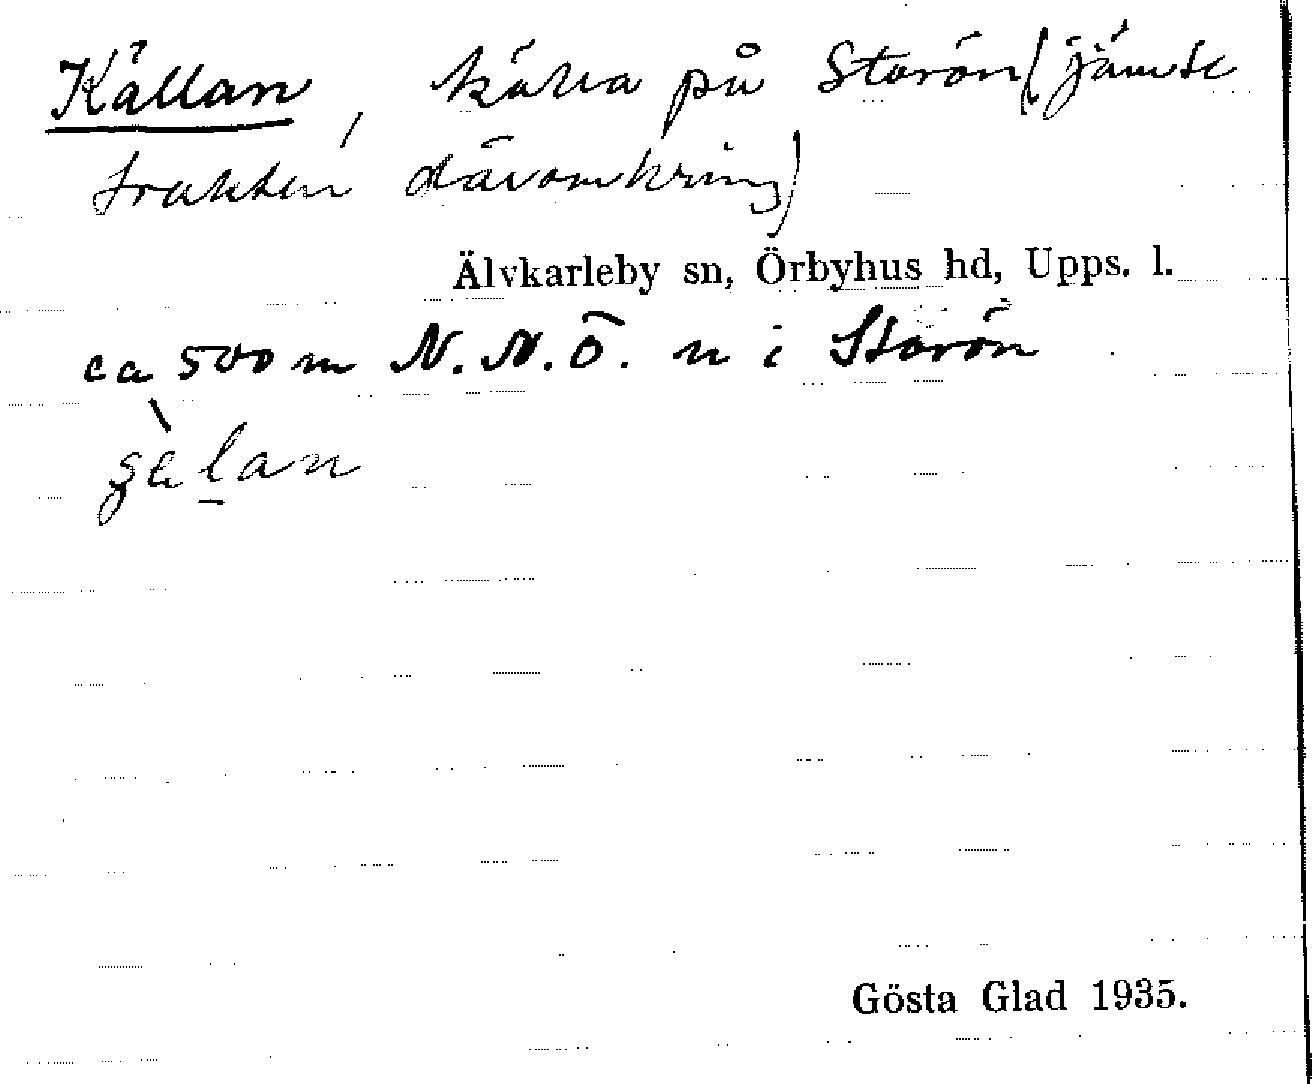 Källan, källa på Storön (jämte
trakten däromkring)
Älvkarleby sn, Örbyhus hd, Upps. l.
ca 500 m N.N.Ö. n i Storön
Gösta Glad 1935.